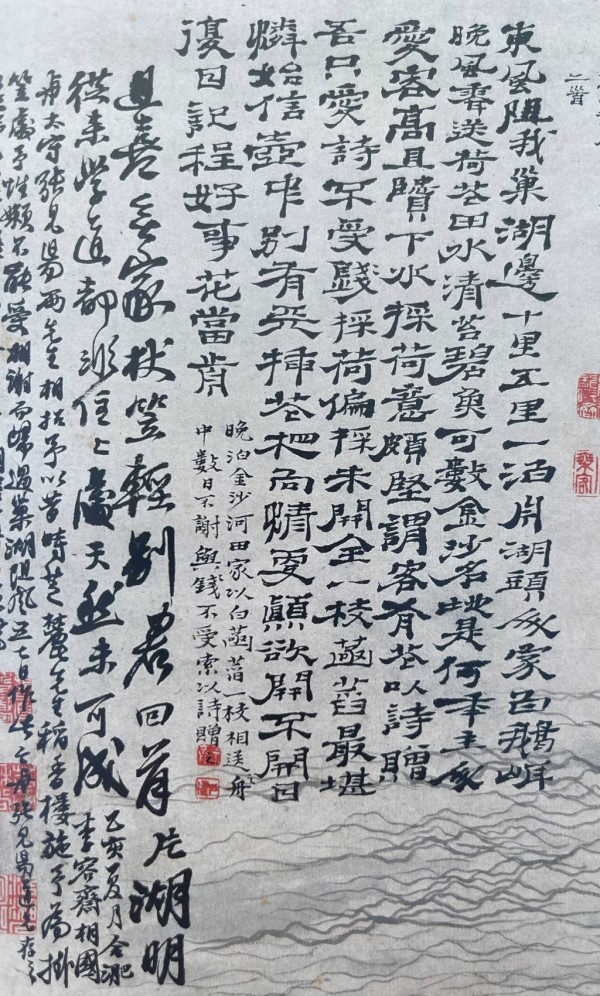 二首
東風阻我巢湖邊十里五里一泊舟湖頭人家白鵝岸
晚風齊送荷花田水清苔碧魚可數金沙名地是何年主人
愛客高且賢下水採荷意頗堅謂客有花以詩贈
吾只愛詩不愛錢採荷偏採未開全一枝菡萏最堪
憐始信壺中別有天插花把向情更顛欲開不開日
復日記程好事花當前
晚泊金沙河田家以白菡萏一枝相送舟
中數日不謝與錢不受索以詩贈之
且喜無家杖笠輕別君回首片湖明
從來學道都非住住處天然未可成
乙亥夏月合淝
李容齋相國
與太守張見陽兩先生相招予以昔時芝麓先生稻香樓施予為掛
笠處予性懶不能受相謝而歸過巢湖阻風五七日作此寄張見陽道兄存之